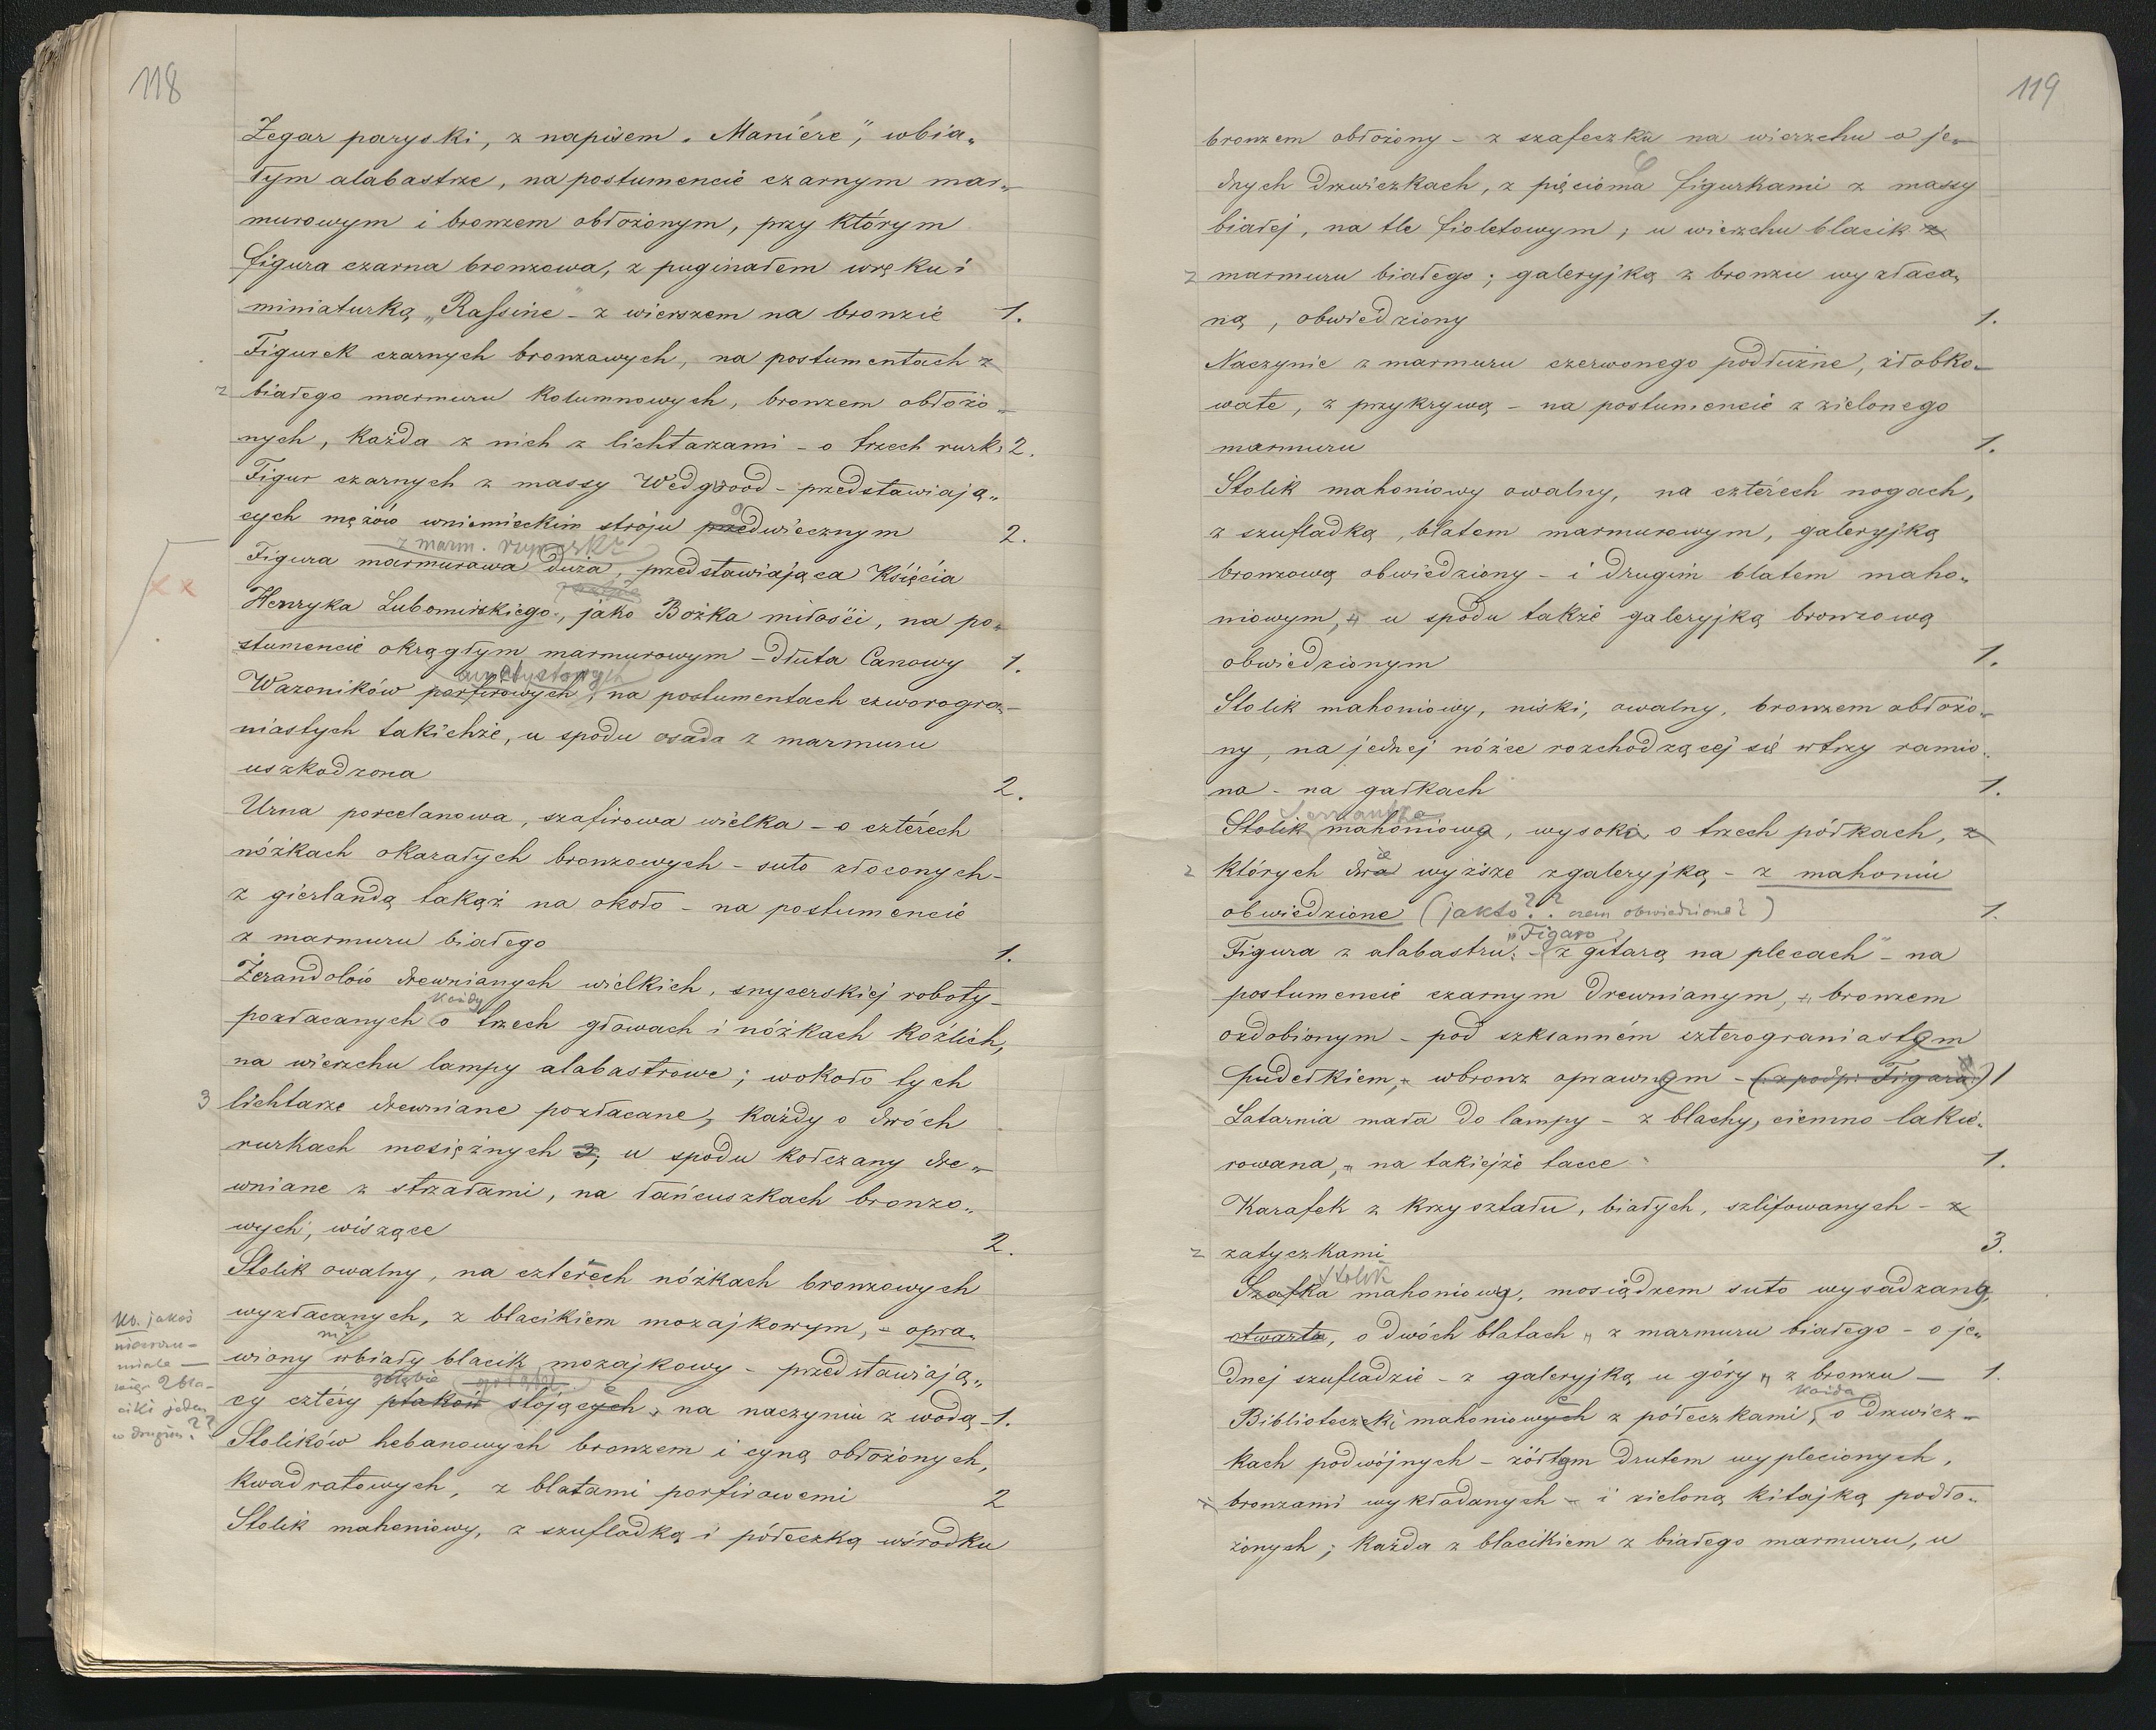 118
Zegar paryski, z napisem „Maniére”, wbia„
łym alabastrze, na postumencie czarnym mar„
murowym i bronzem obłożonym, przy którym
figura czarna bronzowa, z puginałem wręku i
miniaturką „Rassine” – z wierszem na bronzie 1.
Figurek czarnych bronzowych, na postumentach z
z białego marmuru kolumnowych, bronzem obłożo„
nych, każda z nich z lichtarzami – o trzech rurk: 2.
Figur czarnych z massy Wedgwood – przedstawiają„
cych mężów wniemieckim stroju przedwiecznym 2.
z marm.
Figura marmurowa duża, przedstawiająca Księcia
x x
Henryka Lubomirskiego, jako Bożka miłości, na po„
stumencie okrągłym marmurowym – dłuta Canowy 1.
ametystowych
Wazoników porfirowych, na postumentach czworogra„
niastych takichże, u spodu osada z marmuru
uszkodzona 2.
Urna porcelanowa, szafirowa wielka – o czterech
nóżkach okazałych bronzowych – suto złoconych –
z gierlandą takąż na około – na postumencie
z marmuru białego 1.
Żerandolów drewnianych wielkich, snycerskiej roboty –
każdy
pozłacanych o trzech głowach i nóżkach koźlich,
na wierzchu lampy alabastrowe; wokoło tych
3 lichtarze drewniane pozłacane, każdy o dwóch
rurkach mosiężnych 3; u spodu kołczany dre„
wniane z strzałami, na łańcuszkach bronzo„
wych, wiszące 2.
Stolik owalny, na czterech nóżkach bronzowych
wyzłacanych, z blacikiem mozajkowym, – opra„
wiony wbiały blacik mozajkowy – przedstawiają„
gołębie
cy cztéry ptaków stojących, na naczyniu z wodą – 1.
jakoś
niezrozu–
miale —
więc 2 bla–
ciki jeden
w drugim??
Stolików hebanowych bronzem i cyną obłożonych,
kwadratowych, z blatami porfirowemi 2
Stolik mahoniowy, z szufladką i półeczką wśrodku
119
bronzem obłożony – z szafeczką na wierzchu o je„
dnych drzwiczkach, z pięcioma figurkami z massy
białej, na tle fioletowym, u wierzchu blacik z
z marmuru białego; galeryjką z bronzu wyzłaca„
ną, obwiedziony 1.
Naczynie z marmuru czerwonego podłużne, żłobko„
wate, z przykrywą – na postumencie z zielonego
marmuru 1.
Stolik mahoniowy owalny, na czterech nogach,
z szufladką, blatem marmurowym, galeryjką
bronzową obwiedziony – i drugim blatem maho„
niowym, u spodu także galeryjką bronzową
obwiedzionym 1.
Stolik mahoniowy, niski, owalny, bronzem obłożo„
ny, na jednej nóżce rozchodzącej się wtrzy ramio„
na – na gałkach 1.
Serwantka
Stolik mahoniowa, wysoka, o trzech półkach, z
z których dwie wyższe zgaleryjką – z mahoniu
obwiedzione (jakto?? czem obwiedzione?) 1.
„Figaro
Figura z alabastru: z gitarą na plecach” – na
postumencie czarnym drewnianym, bronzem
ozdobionym – pod szklanném czterograniastym
pudełkiem, wbronz oprawnym – (: z podp: Figara) 1
Latarnia mała do lampy – z blachy, ciemno lakie„
rowana, na takiejże tacce 1.
Karafek z kryształu, białych, szlifowanych – z
z zatyczkami 3.
stolik
Szafka mahoniowy, mosiądzem suto wysadzany,
otwarta, o dwóch blatach z marmuru białego – o je„
dnej szufladzie – z galeryjką u góry z bronzu — 1.
każda
Biblioteczki mahoniowych z półeczkami, o drzwicz„
kach podwójnych – żółtym drutem wyplecionych,
bronzami wykładanych – i zieloną kitajką podło„
żonych; każda z blacikiem z białego marmuru, u